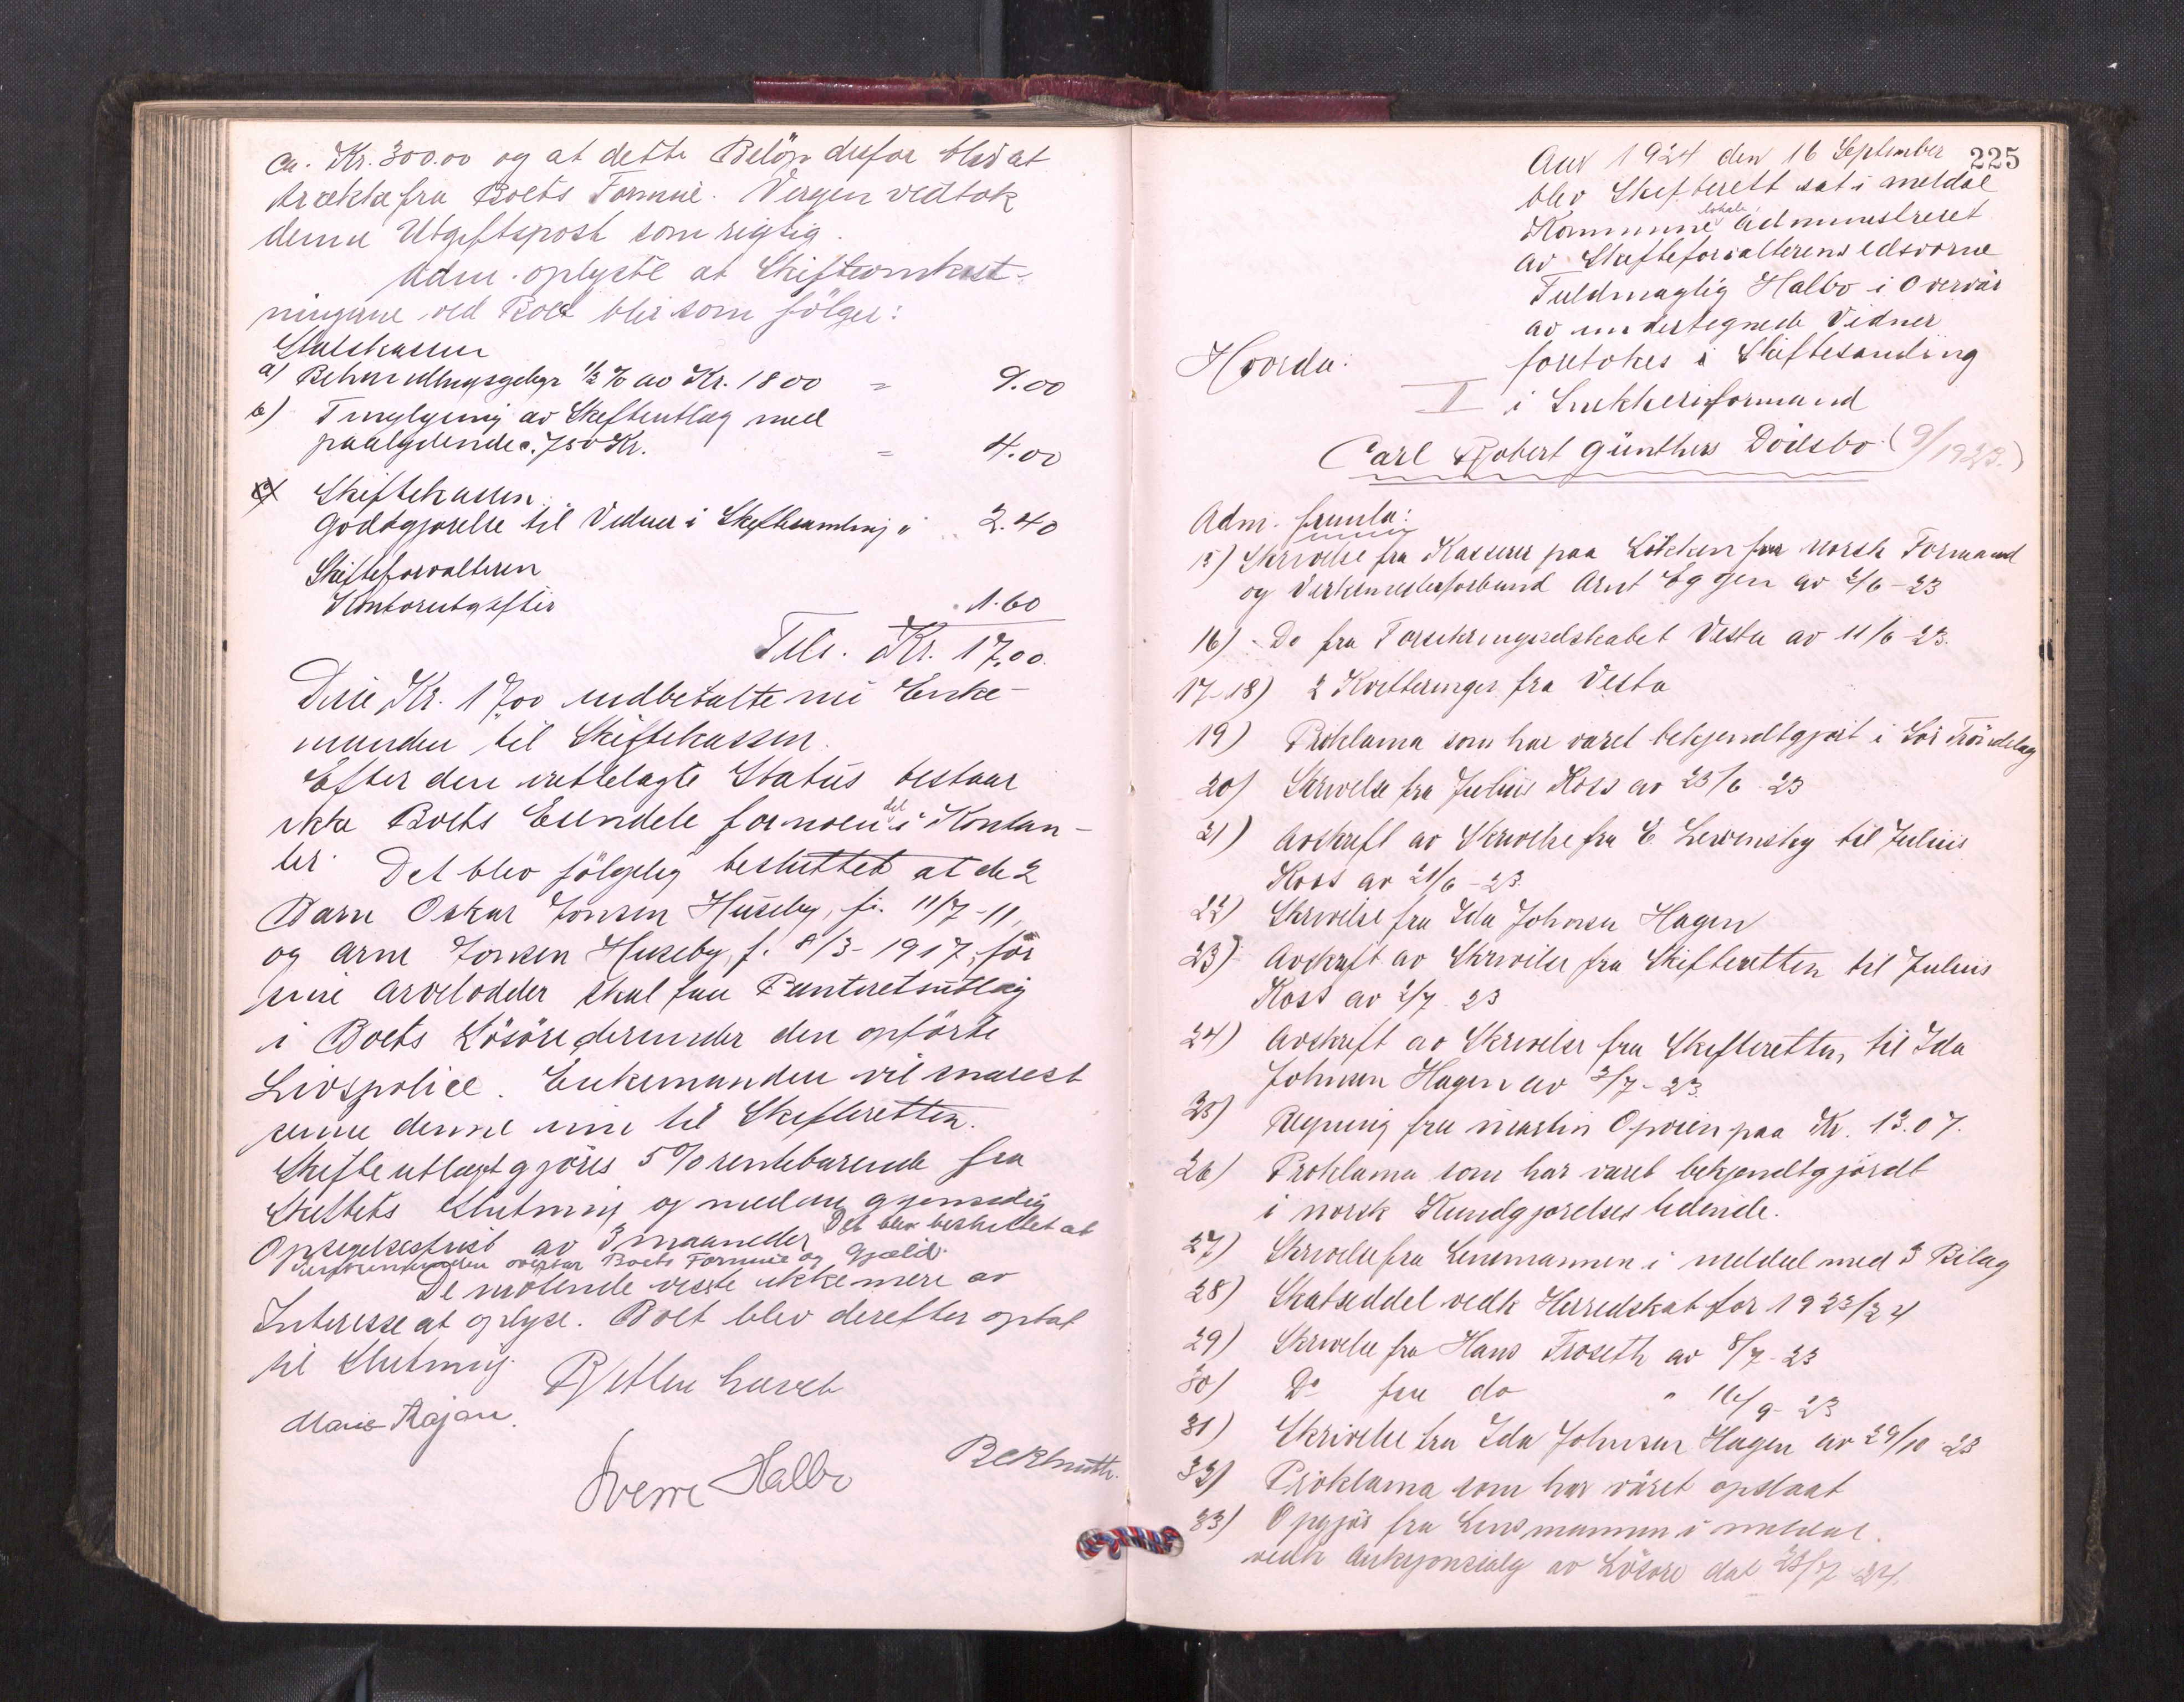 ca. Kr. 300.00 og at dette Beløp derfor blev at
trække fra Boets Formue. Vergen vedtok
denne Utgiftspost som rigtig.
Adm. oplyste at Skifteomkost-
ningerne ved Boet blir som følger:
Statskassen
a) Behandlingsgebyr 1/2 % av Kr. 1800 = 9.00
b) Tinglysning av Skifteutlæg med
paalydende c. 750 Kr. = 4.00
Skiftekassen
Godtgjørelse til Vidner i Skiftesamling " 2.40
Skifteforvalteren
Kontorutgifter 1.60
Tils. Kr. 17.00
Disse Kr. 17,00 indbetalte nu Enke-
manden til Skiftekassen.
Efter den irettelagte Status bestaar
ikke Boets Eiendele fornoen del i Kontan-
ter. Det blev følgelig besluttet at de 2
Barn Oskar Jonsen Huseby, f. 11/7-11,
og Arne Jonsen Huseby, f. 8/3-1917, for
sine Arvelodder skal faa Panteretsutlæg
i Boets Løsøre, derunder den opførte
Livspolice. Enkemanden vil snarest
sende denne inn til Skifteretten.
Skifteutlægt gjøres 5% rentebærende fra
Skiftets Slutning og med en gjensidig
Opsigelsesfrist av 3 maaneder Det blev besluttet at
Enkemanden overtar Boets Formue og Gjæld.
De møtende visste ikke mere av
Interesse at oplyse. Boet blev derefter optat
til Slutning.
Retten hævet
Marie Rajan.
Sverre Halbo

225
Aar 1924 den 16 September
blev Skifterett sat i Meldal
Kommunelokale Administreret
av Skifteforvalterens edsvorne
Fuldmægtig Halbo i Overvær
av undertegnede Vidner
Hvorda: foretokes i Skiftesamling
II i Snekkerformand
Carl Robert Günthers Dödsbo (9/1923.)
Adm. fremla:
15) Skrivelse fra Kasserer paa Løkken for Norsk Formand
og Verksmesterforbund Arnt Eggen av 2/6-23
16) Do fra Forsikringsselskabet Vesta av 11/6-23.
17-18) 2 Kvitteringer fra Vesta
19) Proklama som har været bekjendtgjort i Sör Tröndelag
20) Skrivelse fra Julius Koss av 23/6 23
21) Avskrift av Skrivelse fra E. Lewensky til Julius
Koss av 21/6-23.
22) Skrivelse fra Ida Johnsen Hagen
23) Avskrift av Skrivelse fra Skifteretten til Julius
Koss av 2/7 23
24) Avskrift av Skrivelse fra Skifteretten til Ida
Johnsen Hagen av 2/7-23.
25) Regning fra Martin Opøien paa Kr. 13.07.
26) Proklama som har været bekjendtgjørdt
i Norsk Kundgjørelses tidende.
27) Skrivelse fra Lensmannen i Meldal med 3 Bilag
28) Skatseddel vedk Herredskat for 1923/24
29) Skrivelse fra Hans Troseth av 8/7-23
30) Do fra do " 16/9-23
31) Skrivelse fra Ida Johnsen Hagen av 29/10 23
32) Proklama som har været opslaat
33) Opgjør fra Lensmannen i Meldal
vedk Auksjonsalg av Løsøre dat 28/7 24.